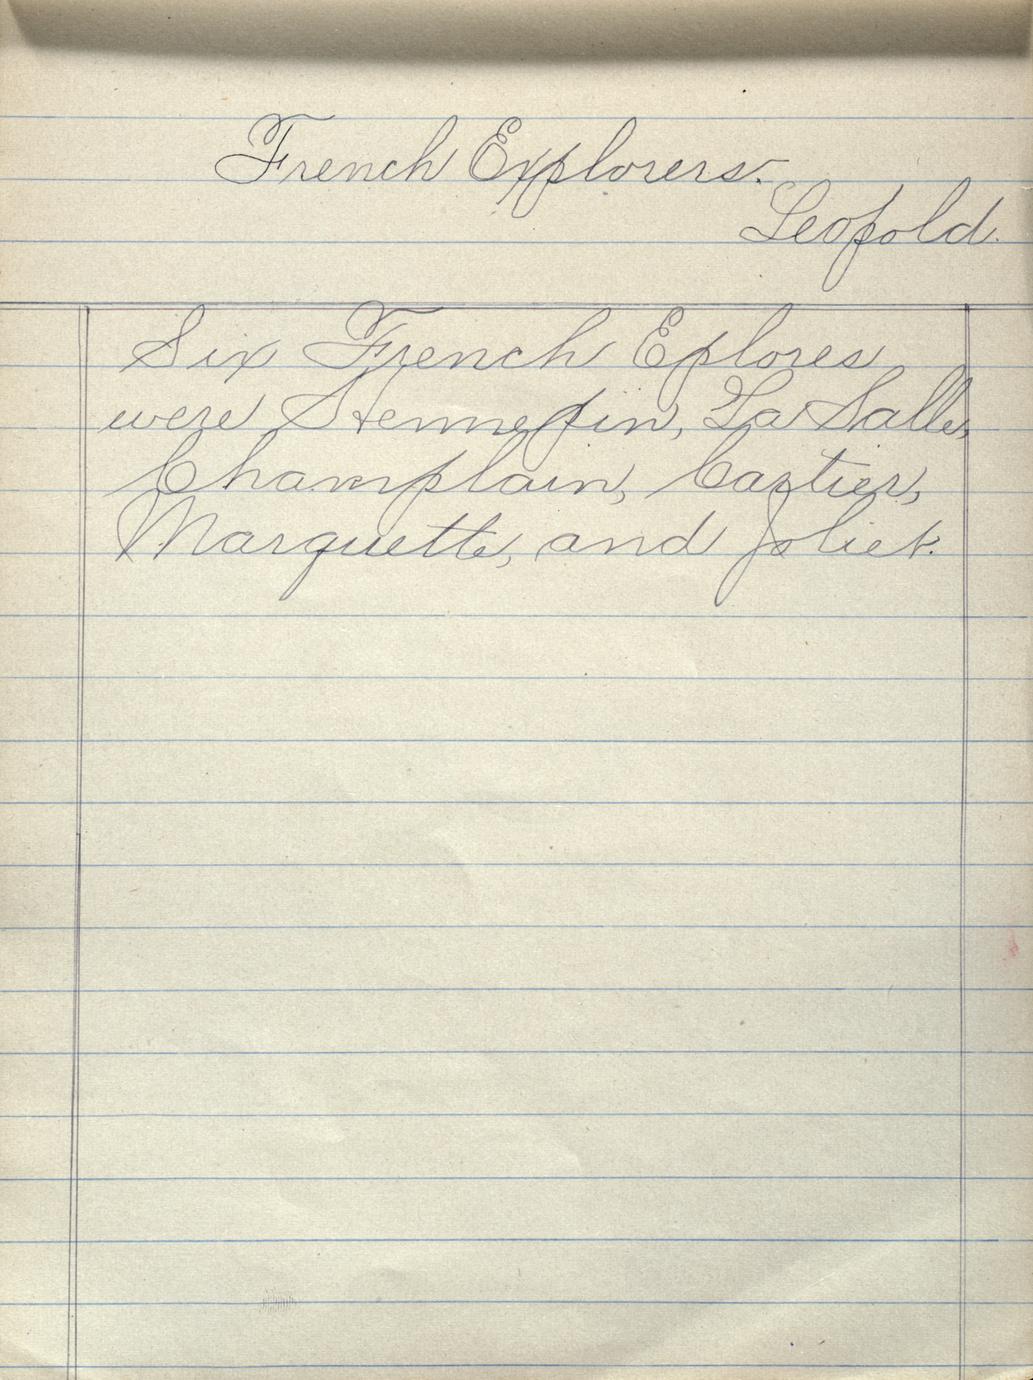 French Explorers.
Leopold.
Six French Eplores
were Hennepin, La Salle,
Champlain, Cartier,
Marquette, and Joliet.